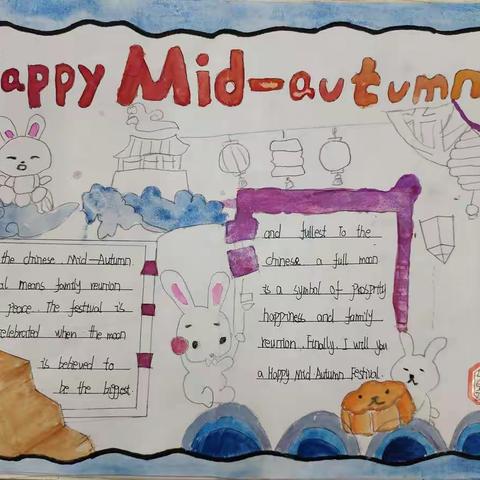 Happy Mid-autumn
the chinese Mid-Autumn
al means family reunion
peace. The festival is
celebrated when the moon
is believed to
be the biggest.
and fullest To the
chinese a full moon
is a symbol of prosprity
happiness and family
reunrion. Finally. I will you
a Happy Mid Autumn Festival.